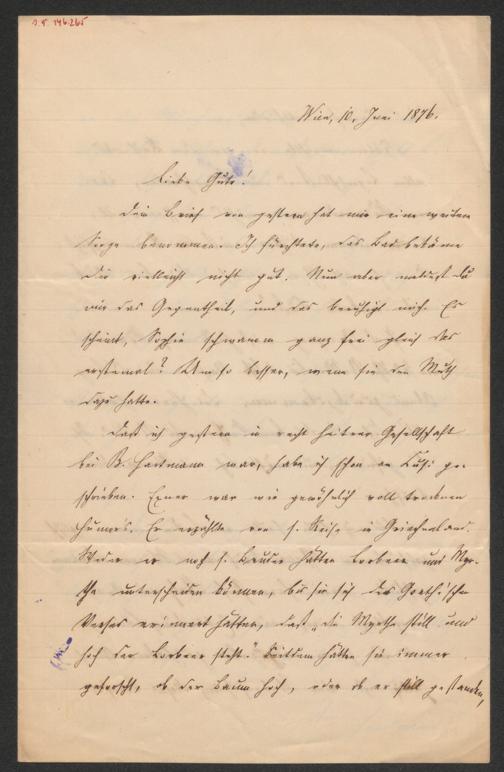 Wien, 10. Juni 1876.
Liebe Gute!
Dein Brief von gestern hat mir eine weitere
Sorge benommen. Ich fürchtete, das Bad bekäme
Dir vielleicht nicht gut. Nun aber meldest Du
mir das Gegentheil, und das beruhigt mich. Es
scheint, Sophie schwamm ganz frei gleich das
erstemal? Um so besser, wenn sie den Muth
dazu hatte.
Daß ich gestern in recht heitrer Gesellschaft
bei B. Hartmann war, habe ich schon an ge-
schrieben. Exner war wie gewöhnlich voll trocknen
Humors. Er erzählte von s. Reise in Griechenland.
Weder er noch s. Bruder hätten Lorbeer und Myr-
the unterscheiden können, bis sie sich des Goethe'schen
Verses erinnert hätten, daß „die Myrthe still und
hoch der Lorbeer steht." Seitdem hätten sie immer
geforscht, ob der Baum hoch, oder ob er still gestanden,